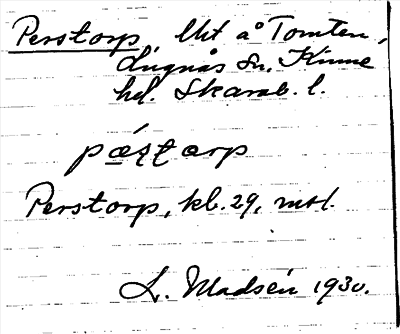 Perstorp, Lht å Tomten,
Lugnås sn, Kinne
hd. Skarab. l.
pæ̀ʂʈarp
Perstorp, kb. 29, mtl.
L. Madsén 1930.